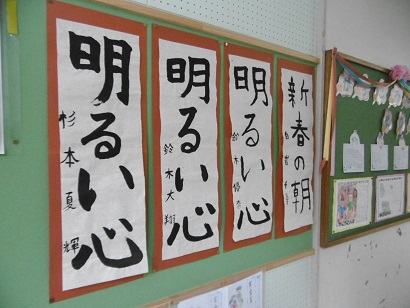 明るい心
杉本夏輝
明るい心
鈴木大翔
明るい心
新春の朝